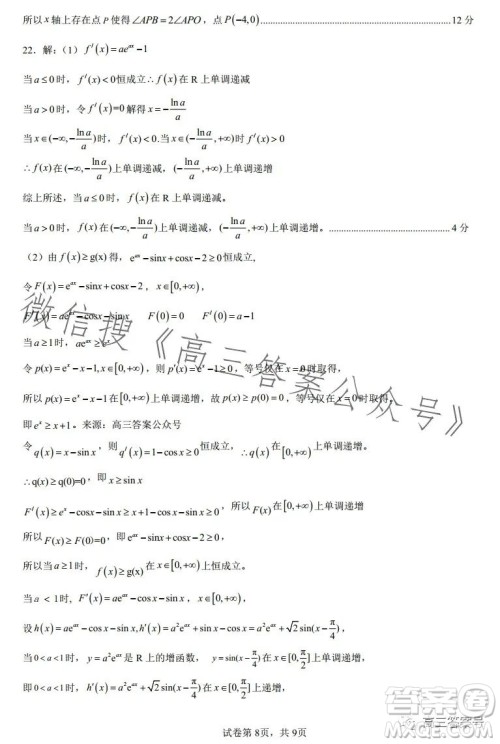 所以 x 轴上存在点 P 使得 ∠APB = 2∠APO，点 P(−4,0)..........12 分
22．解：（1） f′(x) = ae^{ax} − 1
当 a ≤ 0 时，f′(x) < 0 恒成立∴ f(x) 在 R 上单调递减
当 a > 0 时，令 f′(x)=0 解得 x = −\frac{\ln a}{a}
当 x∈(−∞, −\frac{\ln a}{a}) 时，f′(x) < 0. 当 x∈(−\frac{\ln a}{a}, +∞) 时，f′(x) > 0
∴ f(x) 在 (−∞, −\frac{\ln a}{a}) 上单调递减，(−\frac{\ln a}{a}, +∞) 上单调递增
综上所述，当 a ≤ 0 时，f(x) 在 R 上单调递减，
当 a > 0 时，f(x) 在 (−∞, −\frac{\ln a}{a}) 上单调递减，(−\frac{\ln a}{a}, +∞) 上单调递增。..........4 分
（2）由 f(x) ≥ g(x) 得，e^{ax} − sinx + cosx − 2 ≥ 0 恒成立，
令 F(x) = e^{ax} − sinx + cosx − 2，x∈[0,+∞)，
F′(x) = ae^{ax} − cosx − sinx F(0) = 0 F′(0) = a − 1
当 a ≥ 1 时，ae^{ax} ≥ e^{x}
令 p(x) = e^{x} − x − 1, x∈[0,+∞)，则 p′(x) = e^{x} − 1 ≥ 0，等号仅在 x = 0 时取得，
所以 p(x) = e^{x} − x − 1 在 [0,+∞) 上单调递增，故 p(x) ≥ p(0) = 0，等号仅在 x = 0 时取得，
即 e^{x} ≥ x + 1. 来源：高三答案公众号
令 q(x) = x − sin x，则 q′(x) = 1 − cos x ≥ 0 恒成立，∴ q(x) 在 [0,+∞) 上单调递增。
∴ q(x) ≥ q(0)=0，即 x ≥ sin x
F′(x) ≥ e^{x} − cos x − sin x ≥ x + 1 − cos x − sin x ≥ 0，所以 F(x) 在 [0,+∞) 上单调递增
所以 F(x) ≥ F(0)=0，即 e^{ax} − sin x + cos x − 2 ≥ 0，
所以当 a ≥ 1 时，f(x) ≥ g(x) 在 x∈[0,+∞) 上单调递增
当 a < 1 时，F′(x) = ae^{ax} − cos x − sin x，x∈[0,+∞)，
设 h(x) = ae^{ax} − cos x − sin x, h′(x) = a²e^{ax} + sin x − cos x = a²e^{ax} + √2 sin(x − \frac{π}{4})，
当 0 < a < 1 时，y = a²e^{ax} 是 R 上的增函数， y = sin(x − \frac{π}{4}) 在 x∈[0, \frac{π}{2}] 上单调递增
即 0 < a < 1 时，h′(x) = a²e^{ax} + √2 sin(x − \frac{π}{4}) 在 x∈[0, \frac{π}{2}] 上单调递增，
试卷第 8页，共 9页
微信搜《高三答案公众号》
答案圈
高三答案号
MXQE.COM